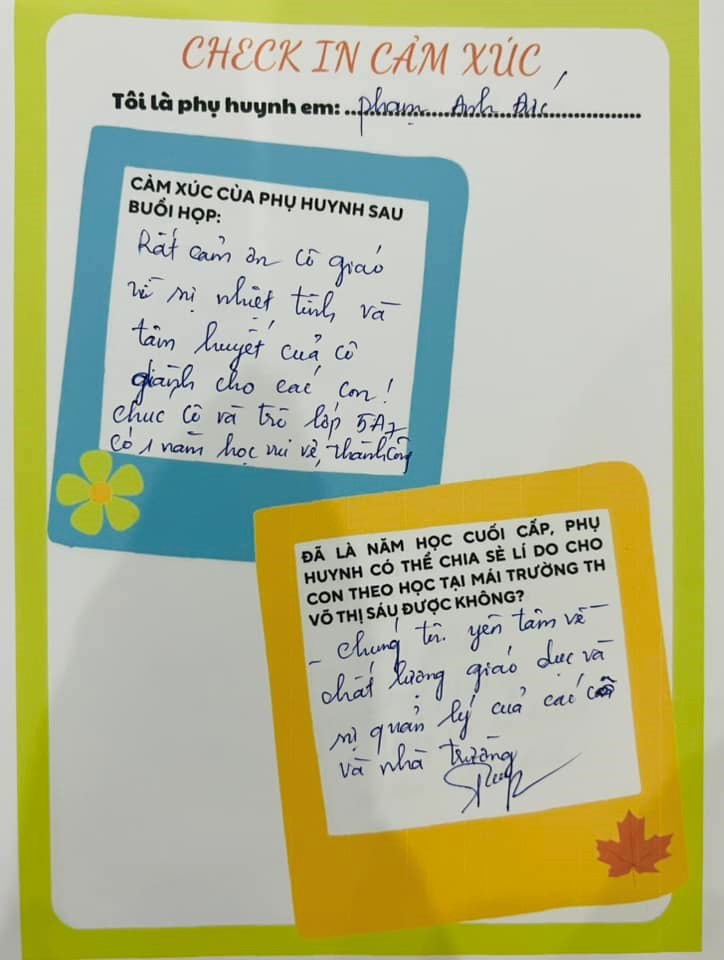 CHECK IN CẢM XÚC
Tôi là phụ huynh em: Phạm Anh Đức
CẢM XÚC CỦA PHỤ HUYNH SAU
BUỔI HỌP:
Rất cảm ơn cô giáo
về sự nhiệt tình và
tâm huyết của cô
giành cho các con!
chúc cô và trò lớp 5A7
có 1 năm học vui vẻ, thành công
ĐÃ LÀ NĂM HỌC CUỐI CẤP, PHỤ
HUYNH CÓ THỂ CHIA SẺ LÍ DO CHO
CON THEO HỌC TẠI MÁI TRƯỜNG TH
VÕ THỊ SÁU ĐƯỢC KHÔNG?
- Chúng tôi yên tâm về
chất lượng giáo dục và
sự quản lý của các cô
và nhà trường